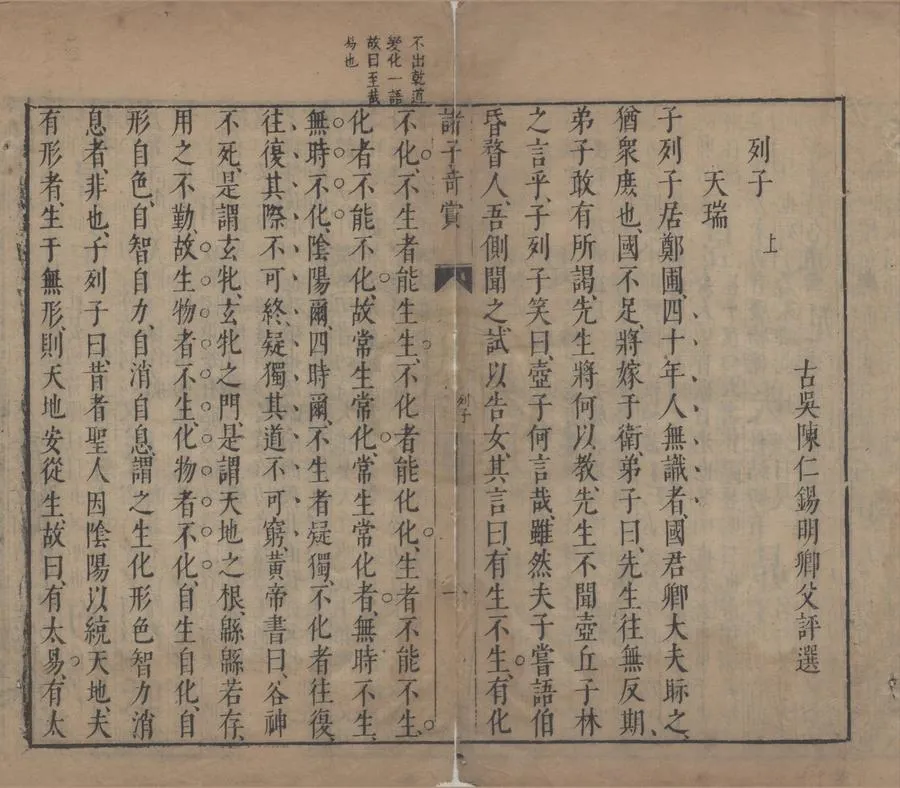 列子 上
古吳陳仁錫明卿父評選
天瑞
子列子居鄭圃、四十年人無識者、國君卿大夫眎之、
猶衆庶也、國不足、將嫁于衛、弟子曰、先生往無反期、
弟子敢有所謁、先生將何以教先生不聞壺丘子林
之言乎、子列子笑曰、壺子何言哉、雖然夫子嘗語伯
昏瞀人、吾側聞之試以告女、其言曰、有生不生、有化
諸子奇賞 列子 一
不出乾道
變化一語
故曰至哉
易也
不化、不生者能生生、不化者能化化、生者不能不生、
化者不能不化、故常生常化、常生常化者、無時不生、
無時不化、陰陽爾、四時爾、不生者疑獨、不化者往復、
往復其際不可終、疑獨其道不可窮、黃帝書曰、谷神
不死、是謂玄牝、玄牝之門、是謂天地之根、緜緜若存、
用之不勤、故生物者不生、化物者不化、自生自化、自
形自色、自智自力、自消自息、謂之生化形色智力消
息者、非也、子列子曰、昔者聖人因陰陽以統天地、夫
有形者、生于無形、則天地安從生故曰、有太易、有太